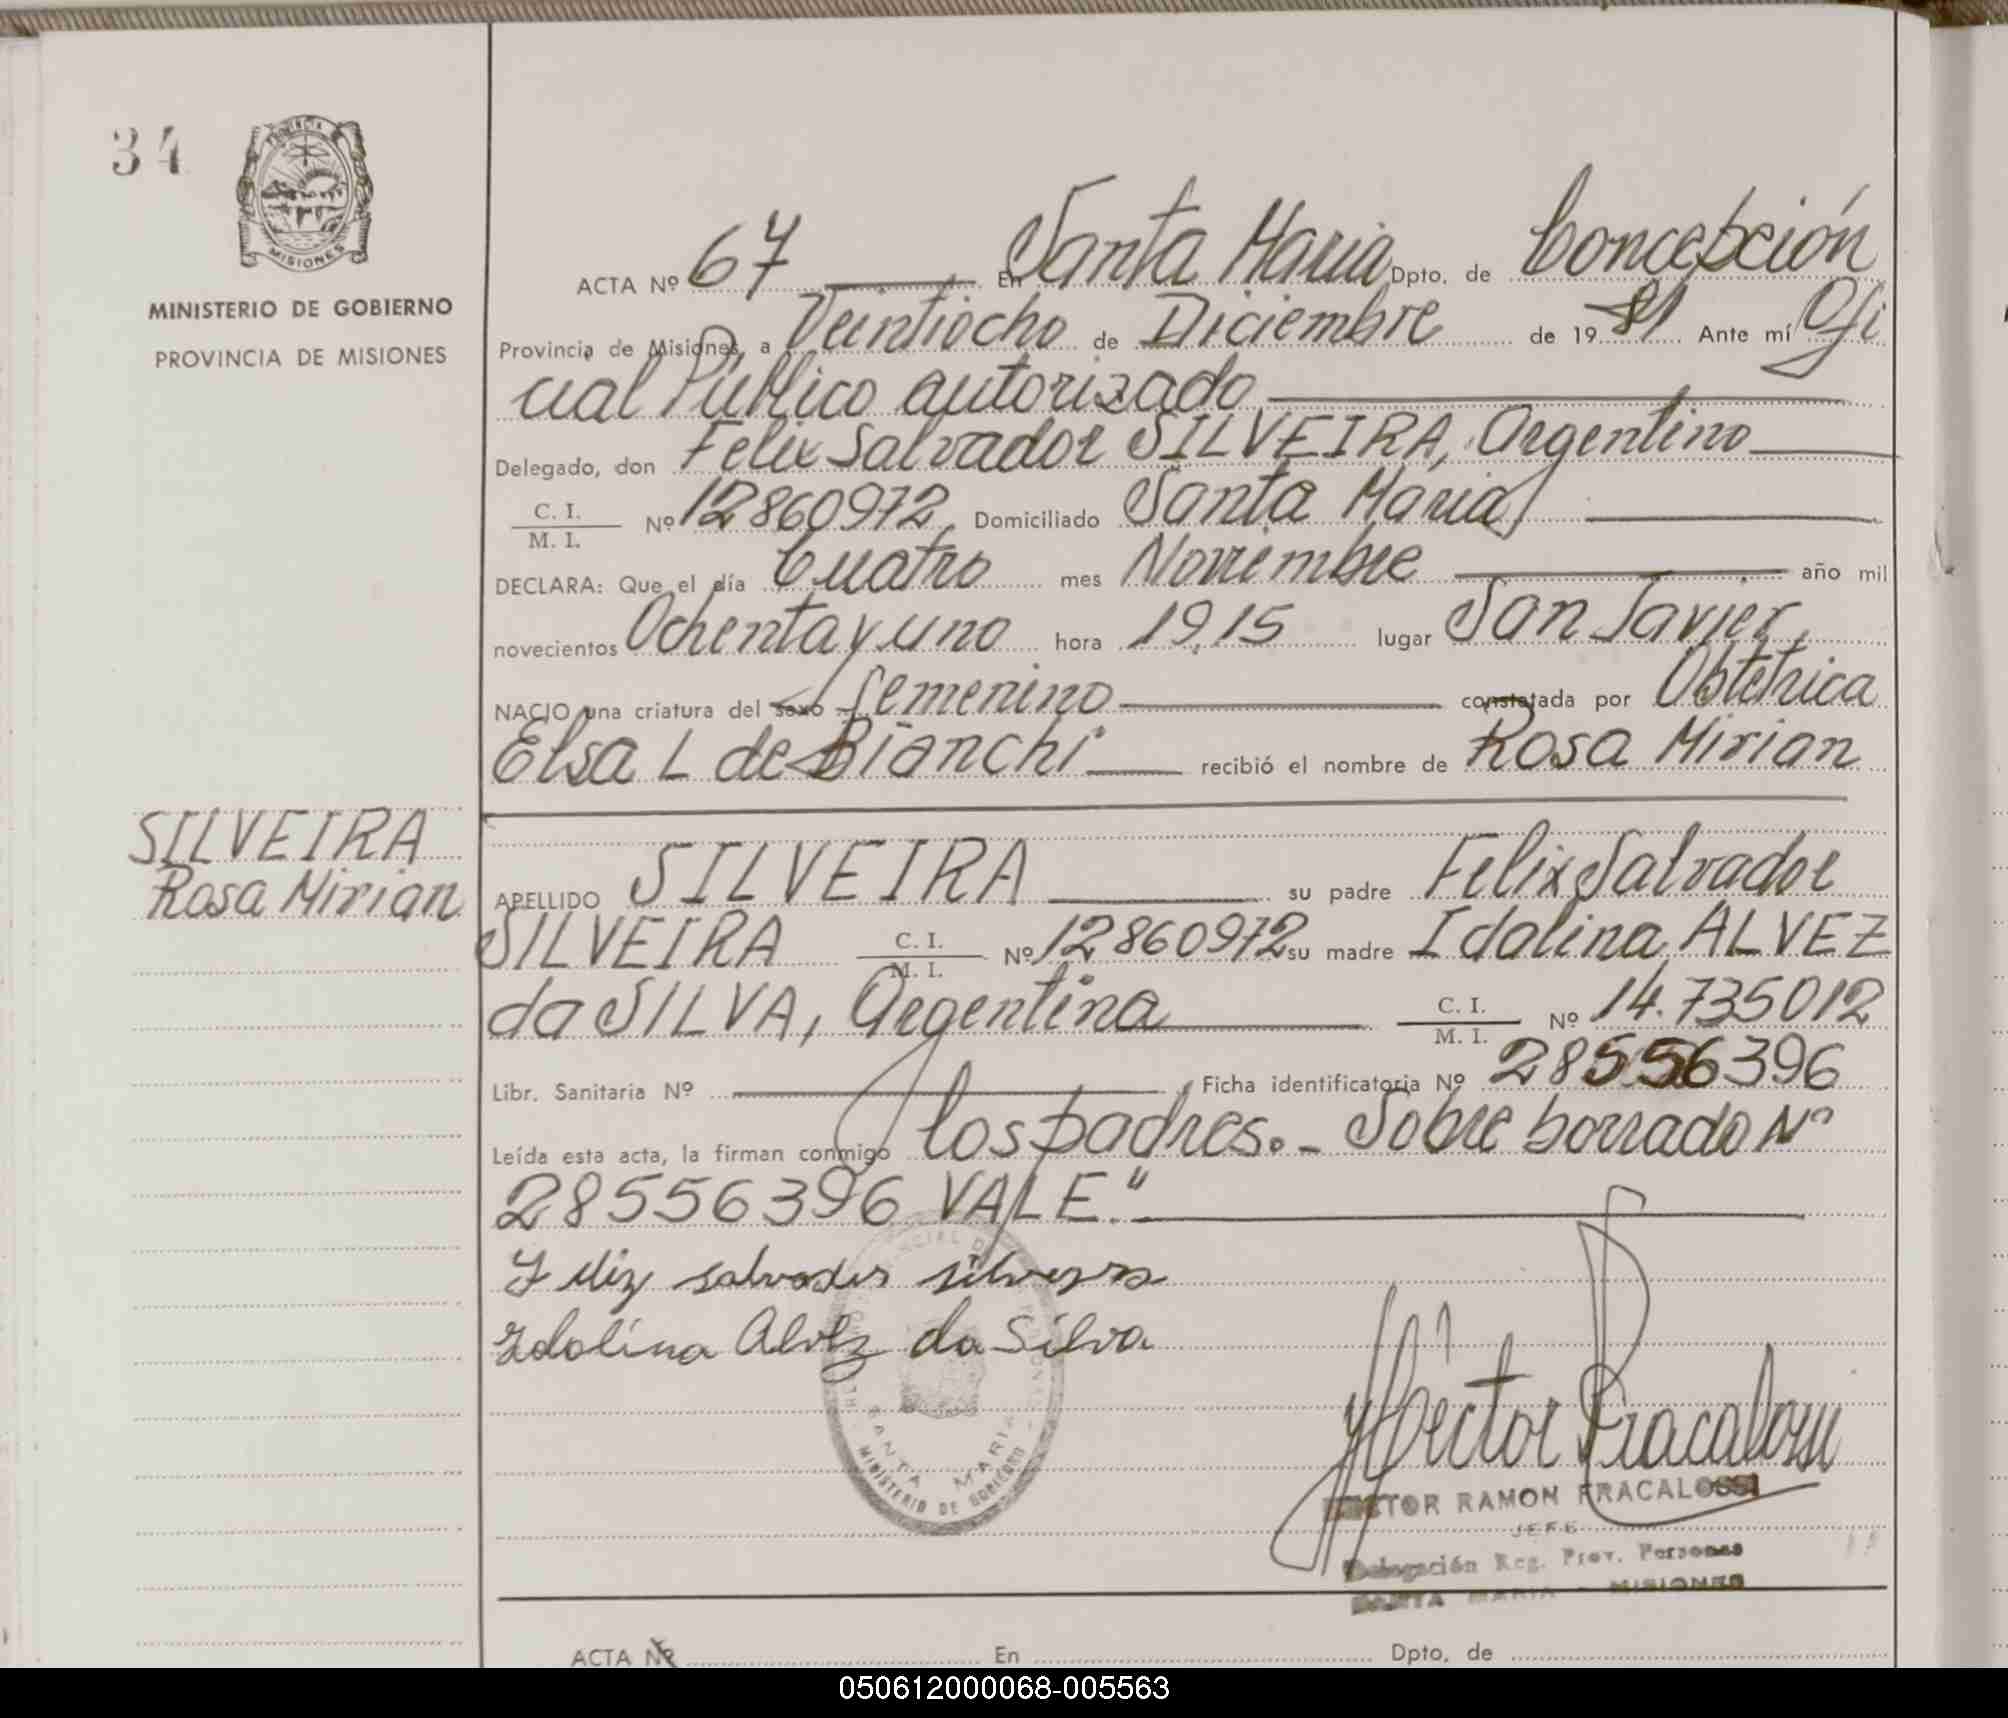 34
PROVINCIA
MISIONES
MINISTERIO DE GOBIERNO
PROVINCIA DE MISIONES
ACTA Nº 67 En Santa Maria Dpto. de Concepción
Provincia de Misiones, a Veintiocho de Diciembre de 19 81 Ante mí Ofi
cial Público autorizado
Delegado, don Felix Salvador SILVEIRA, Argentino
C. I.
M. I. Nº 12860972, Domiciliado Santa Maria
DECLARA: Que el día Cuatro mes Noviembre año mil
novecientos Ochenta y uno hora 19,15 lugar San Javier,
NACIO una criatura del sexo femenino constatada por Obtetrica
Elsa L de Bianchi recibió el nombre de Rosa Mirian
SILVEIRA
Rosa Mirian
APELLIDO SILVEIRA su padre Felix Salvador
SILVEIRA C. I. M. I. Nº 12860972 su madre Idalina ALVEZ
da SILVA, Argentina C. I. M. I. Nº 14.735012
Libr. Sanitaria Nº Ficha identificatoria Nº 28556396
Leída esta acta, la firman conmigo los padres.- Sobre borrado Nº
28556396 VALE."
Feliz salvador silveyra
Idolina Alvez da Silva
SANTA MARIA
MINISTERIO DE GOBIERNO
Hector Fracalossi
HECTOR RAMON FRACALOSSI
JEFE
Delegación Reg. Prov. Personas
SANTA MARIA - MISIONES
ACTA Nº En Dpto. de
050612000068-005563